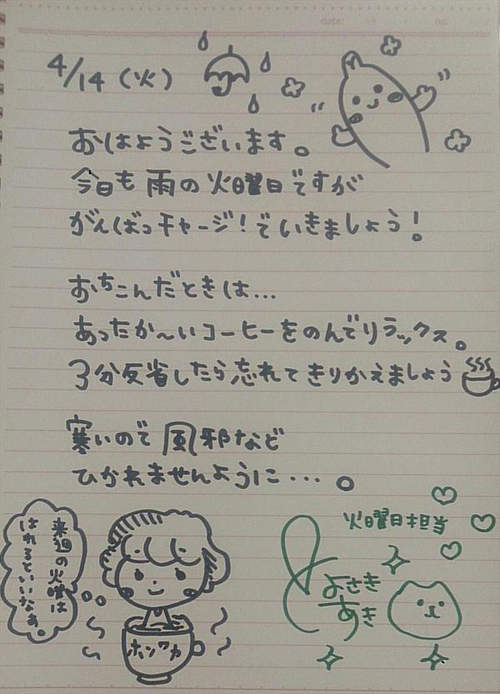 4/14(火)
おはようございます。
今日も雨の火曜日ですが
がんばっチャージ!でいきましょう!
おちこんだときは...
あったか〜いコーヒーをのんでリラックス。
3分反省したら忘れてきりかえましょう
寒いので風邪など
ひかれませんように...。
来週の火曜は
はれるといいなぁ。
ホンワカ
火曜日担当
よさき
あき